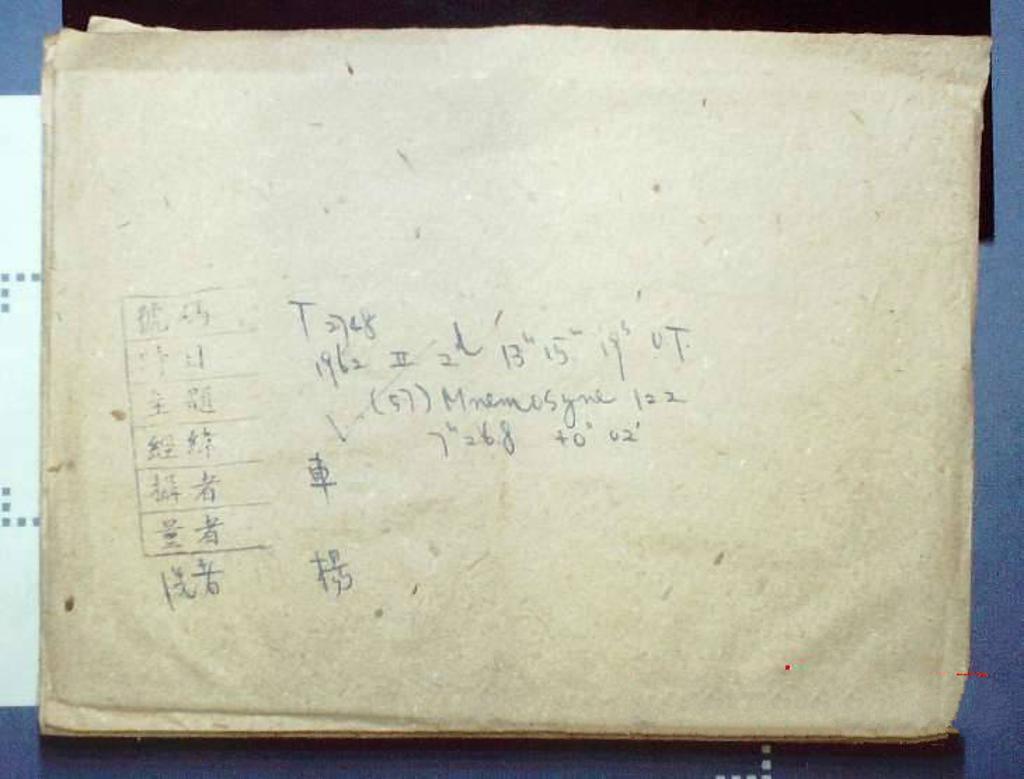 號碼 T2748
時日 1962 II 2d 13h 15m 19s U.T.
主題 (57) Mnemosyne 122
經緯 7h26.8 +0° 02'
攝者 車
量者
誤者 楊